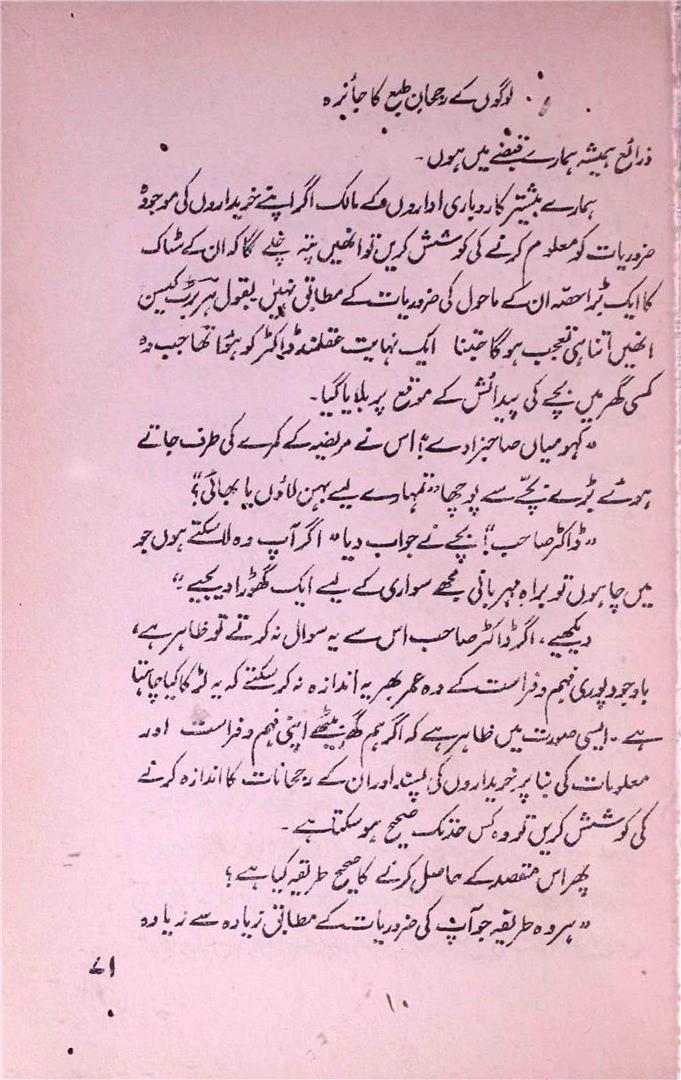 لوگوں کے رجحان طبع کا جائزہ
ذرائع ہمیشہ ہمارے قبضے میں ہوں۔
ہمارے بیشتر کاروباری اداروں کے مالک اگر اپنے خریداروں کی موجودہ
ضروریات کو معلوم کرنے کی کوشش کریں تو انھیں پتہ چلے گا کہ ان کے سٹاک
کا ایک بڑا حصہ ان کے ماحول کی ضروریات کے مطابق نہیں بقول ہربرٹ کیسن
انھیں اتنا ہی تعجب ہوگا جتنا ایک نہایت عقلمند ڈاکٹر کو ہوا تھا جب وہ
کسی گھر میں بچے کی پیدائش کے موقع پر بلایا گیا۔
”کہو میاں صاحبزادے؟! اس نے مریضہ کے کمرے کی طرف جاتے
ہوئے بڑے بچّے سے پوچھا ”تمہارے لیے بہن لاؤں یا بھائی؟“
”ڈاکٹر صاحب“! بچے نے جواب دیا ”اگر آپ وہ لا سکتے ہوں جو
میں چاہوں تو براہ مہربانی مجھے سواری کے لیے ایک گھوڑا دیجیے۔“
دیکھیے، اگر ڈاکٹر صاحب اس سے یہ سوال نہ کرتے تو ظاہر ہے،
باوجود پوری فہم و فراست کے وہ عمر بھر یہ اندازہ نہ کر سکتے کہ یہ لڑکا کیا چاہتا
ہے۔ ایسی صورت میں ظاہر ہے کہ اگر ہم گھر بیٹھے اپنی فہم و فراست اور
معلومات کی بنا پر خریداروں کی پسند اور ان کے رجحانات کا اندازہ کرنے
کی کوشش کریں تو وہ کس حد تک صحیح ہو سکتا ہے۔
پھر اس مقصد کے حاصل کرنے کا صحیح طریقہ کیا ہے؟
”ہر وہ طریقہ جو آپ کی ضروریات کے مطابق زیادہ سے زیادہ
۷۱
۱۰